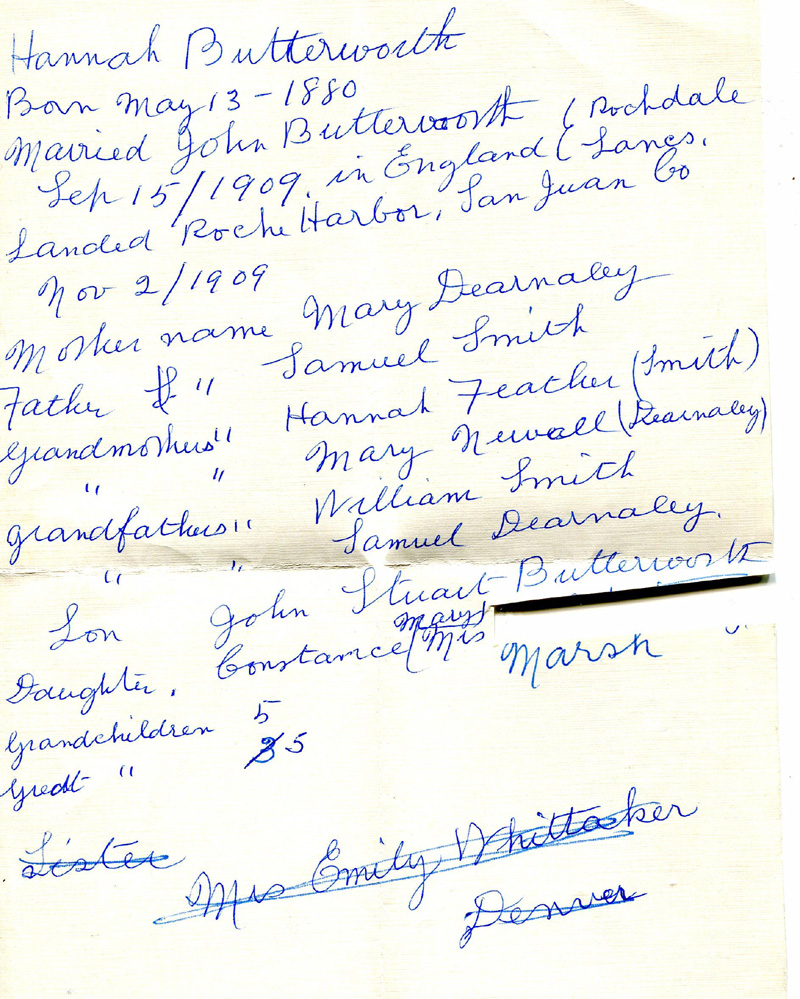 Hannah Butterworth
Born May 13 - 1880
Married John Butterworth ( Rochdale
Sep 15/1909. in England ( Lancs.
Landed Roche Harbor, San Juan Co
Nov 2/1909
Mother name Mary Dearnaley
Father " Samuel Smith
Grandmothers " Hannah Feather (Smith)
" " Mary Newall (Dearnaley)
Grandfathers " William Smith
" " Samuel Dearnaley.
Son John Stuart Butterworth
Mary
Daughter, Constance (Mrs Marsh "
Grandchildren 5
Great " 5
Sister
Mrs Emily Whittaker
Denver